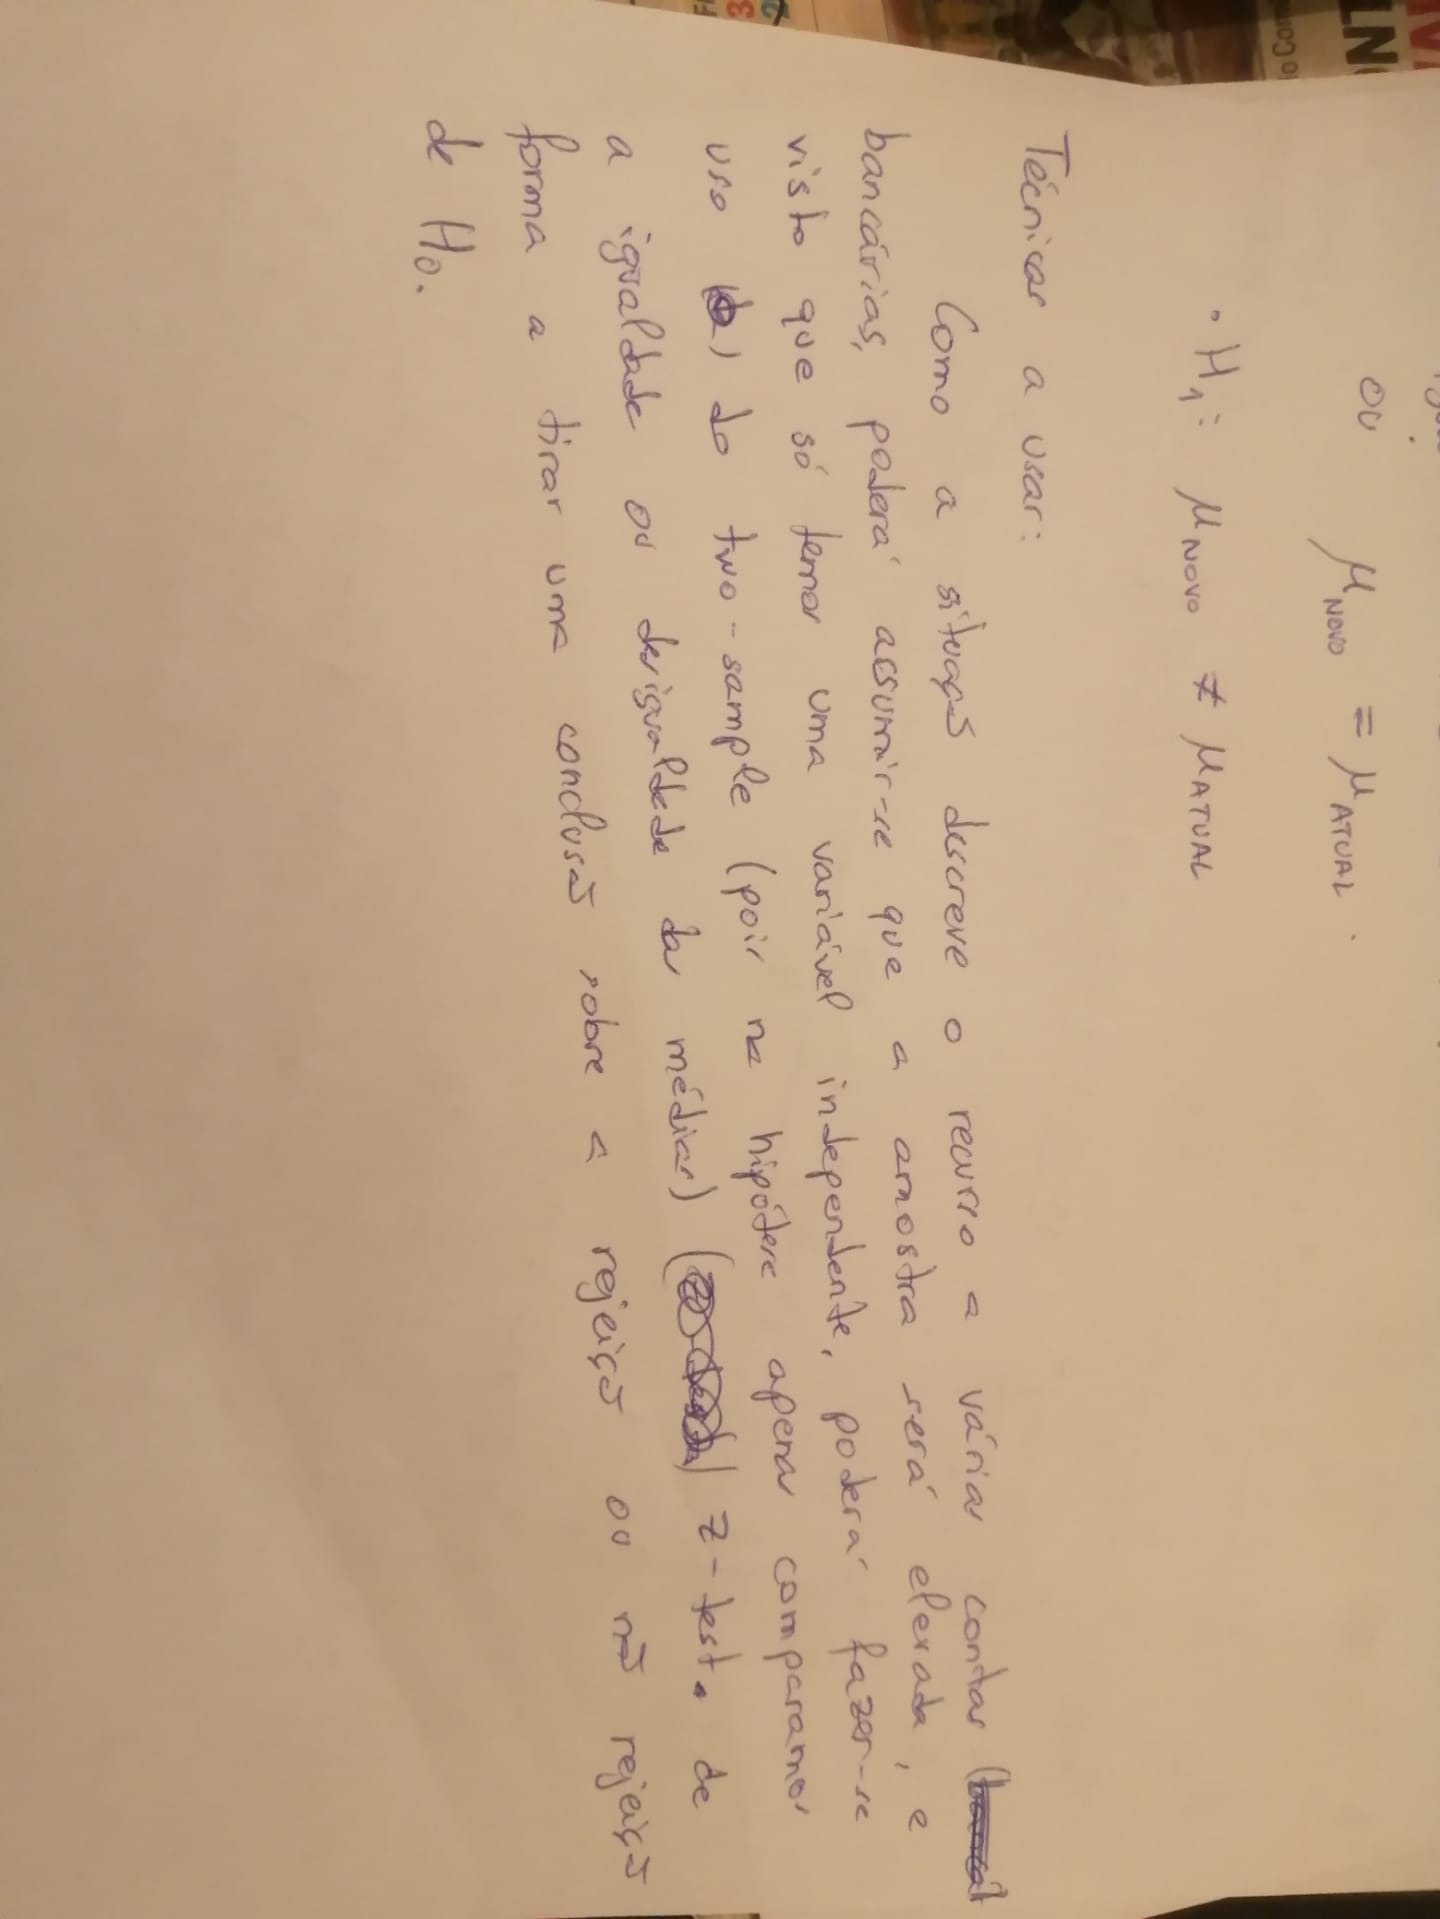 ou μ_NOVO = μ_ATUAL.
• H₁: μ_NOVO ≠ μ_ATUAL
Técnicas a usar:
Como a situação descreve o recurso a várias contas
bancárias, poderá assumir-se que a amostra será elevada, e
visto que só temos uma variável independente, poderá fazer-se
uso do two-sample (pois na hipótese apenas comparamos
a igualdade ou desigualdade das médias) z-test. de
forma a tirar uma conclusão sobre a rejeição ou não rejeição
de H₀.